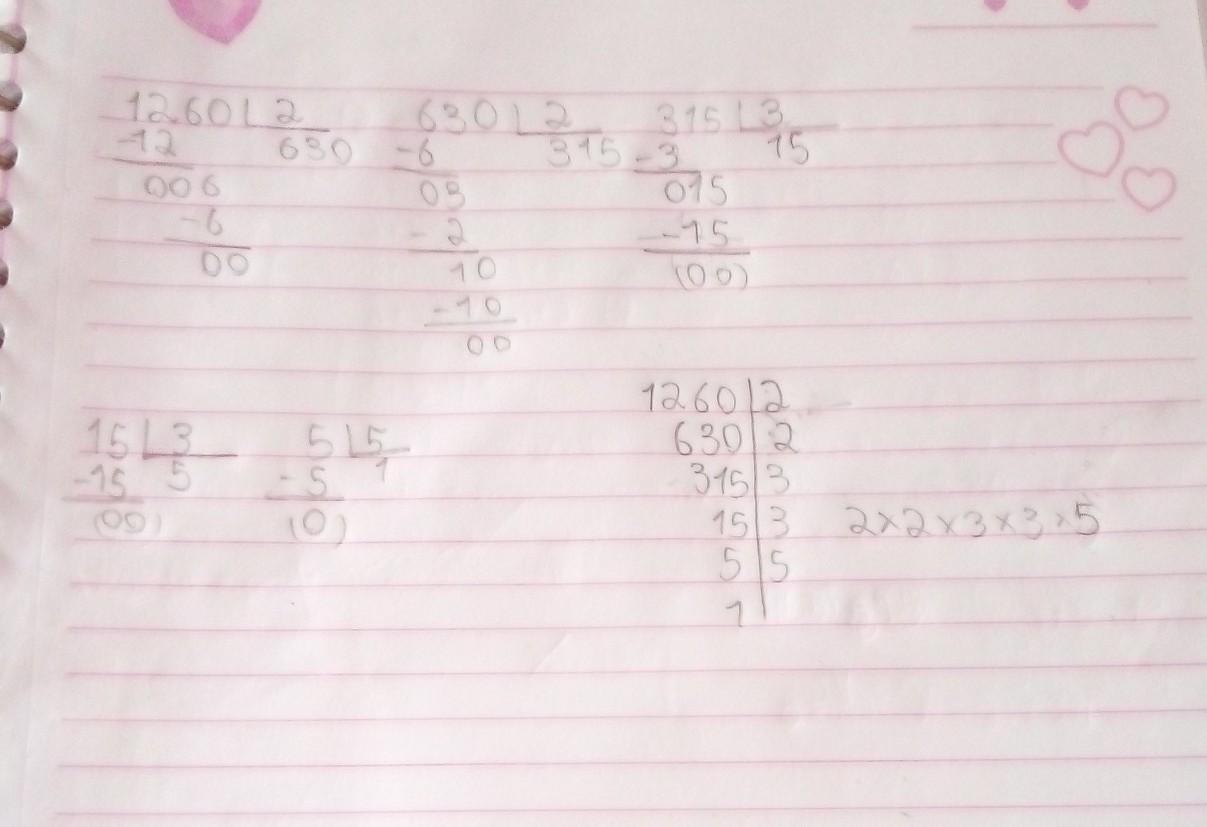 1260 2 630 2 315 3
-12 630 -6 315 -3 15
006 03 015
-6 -2 -15
00 10 (00)
-10
00
1260 2
15 3 5 5 630 2
-15 5 -5 1 315 3
(00) (0) 15 3 2x2x3x3x5
5 5
1